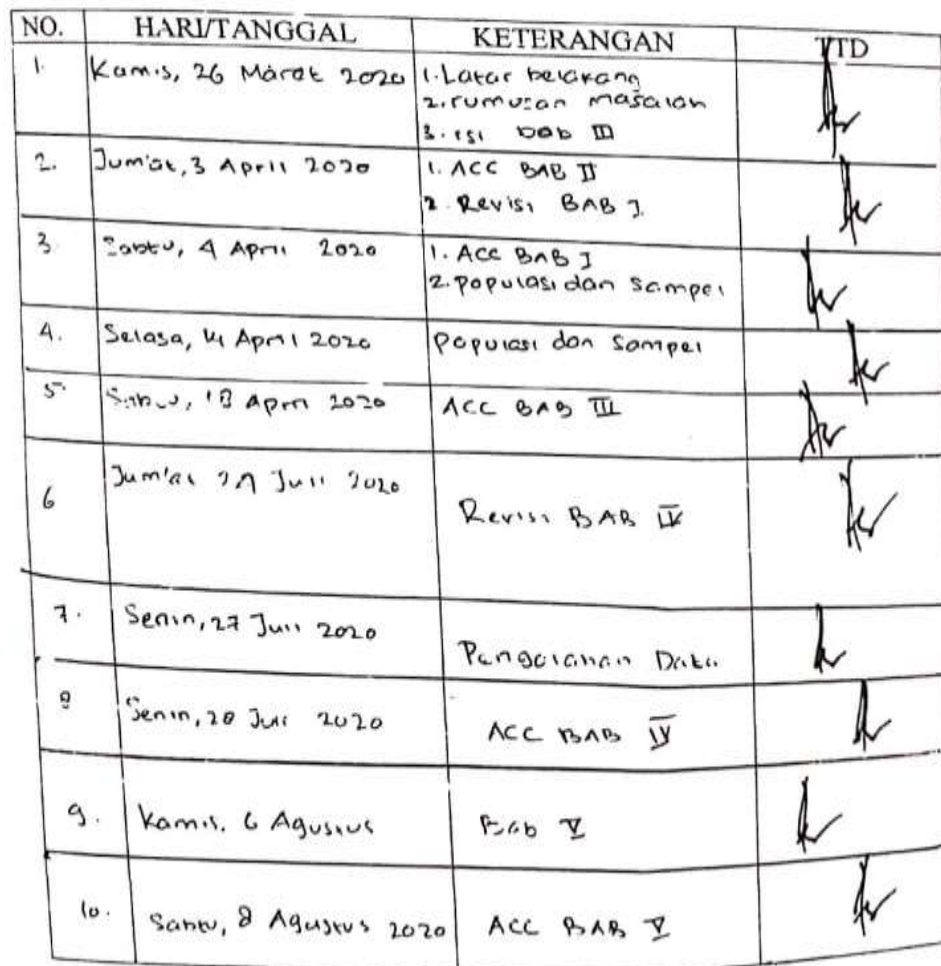 NO. HARI/TANGGAL KETERANGAN TTD
1. Kamis, 26 Maret 2020 1. Latar belakang
2. rumusan masalah
3. isi bab III
2. Jum'at, 3 April 2020 1. ACC BAB II
2. Revisi BAB I
3. Sabtu, 4 April 2020 1. ACC BAB I
2. populasi dan sampel
4. Selasa, 14 April 2020 populasi dan sampel
5. Sabtu, 18 April 2020 ACC BAB III
6 Jum'at 24 Juli 2020 Revisi BAB IV
7. Senin, 27 Juli 2020 Pengolahan Data
8 Senin, 28 Juli 2020 ACC BAB IV
9. Kamis, 6 Agustus Bab V
10. Sabtu, 8 Agustus 2020 ACC BAB V